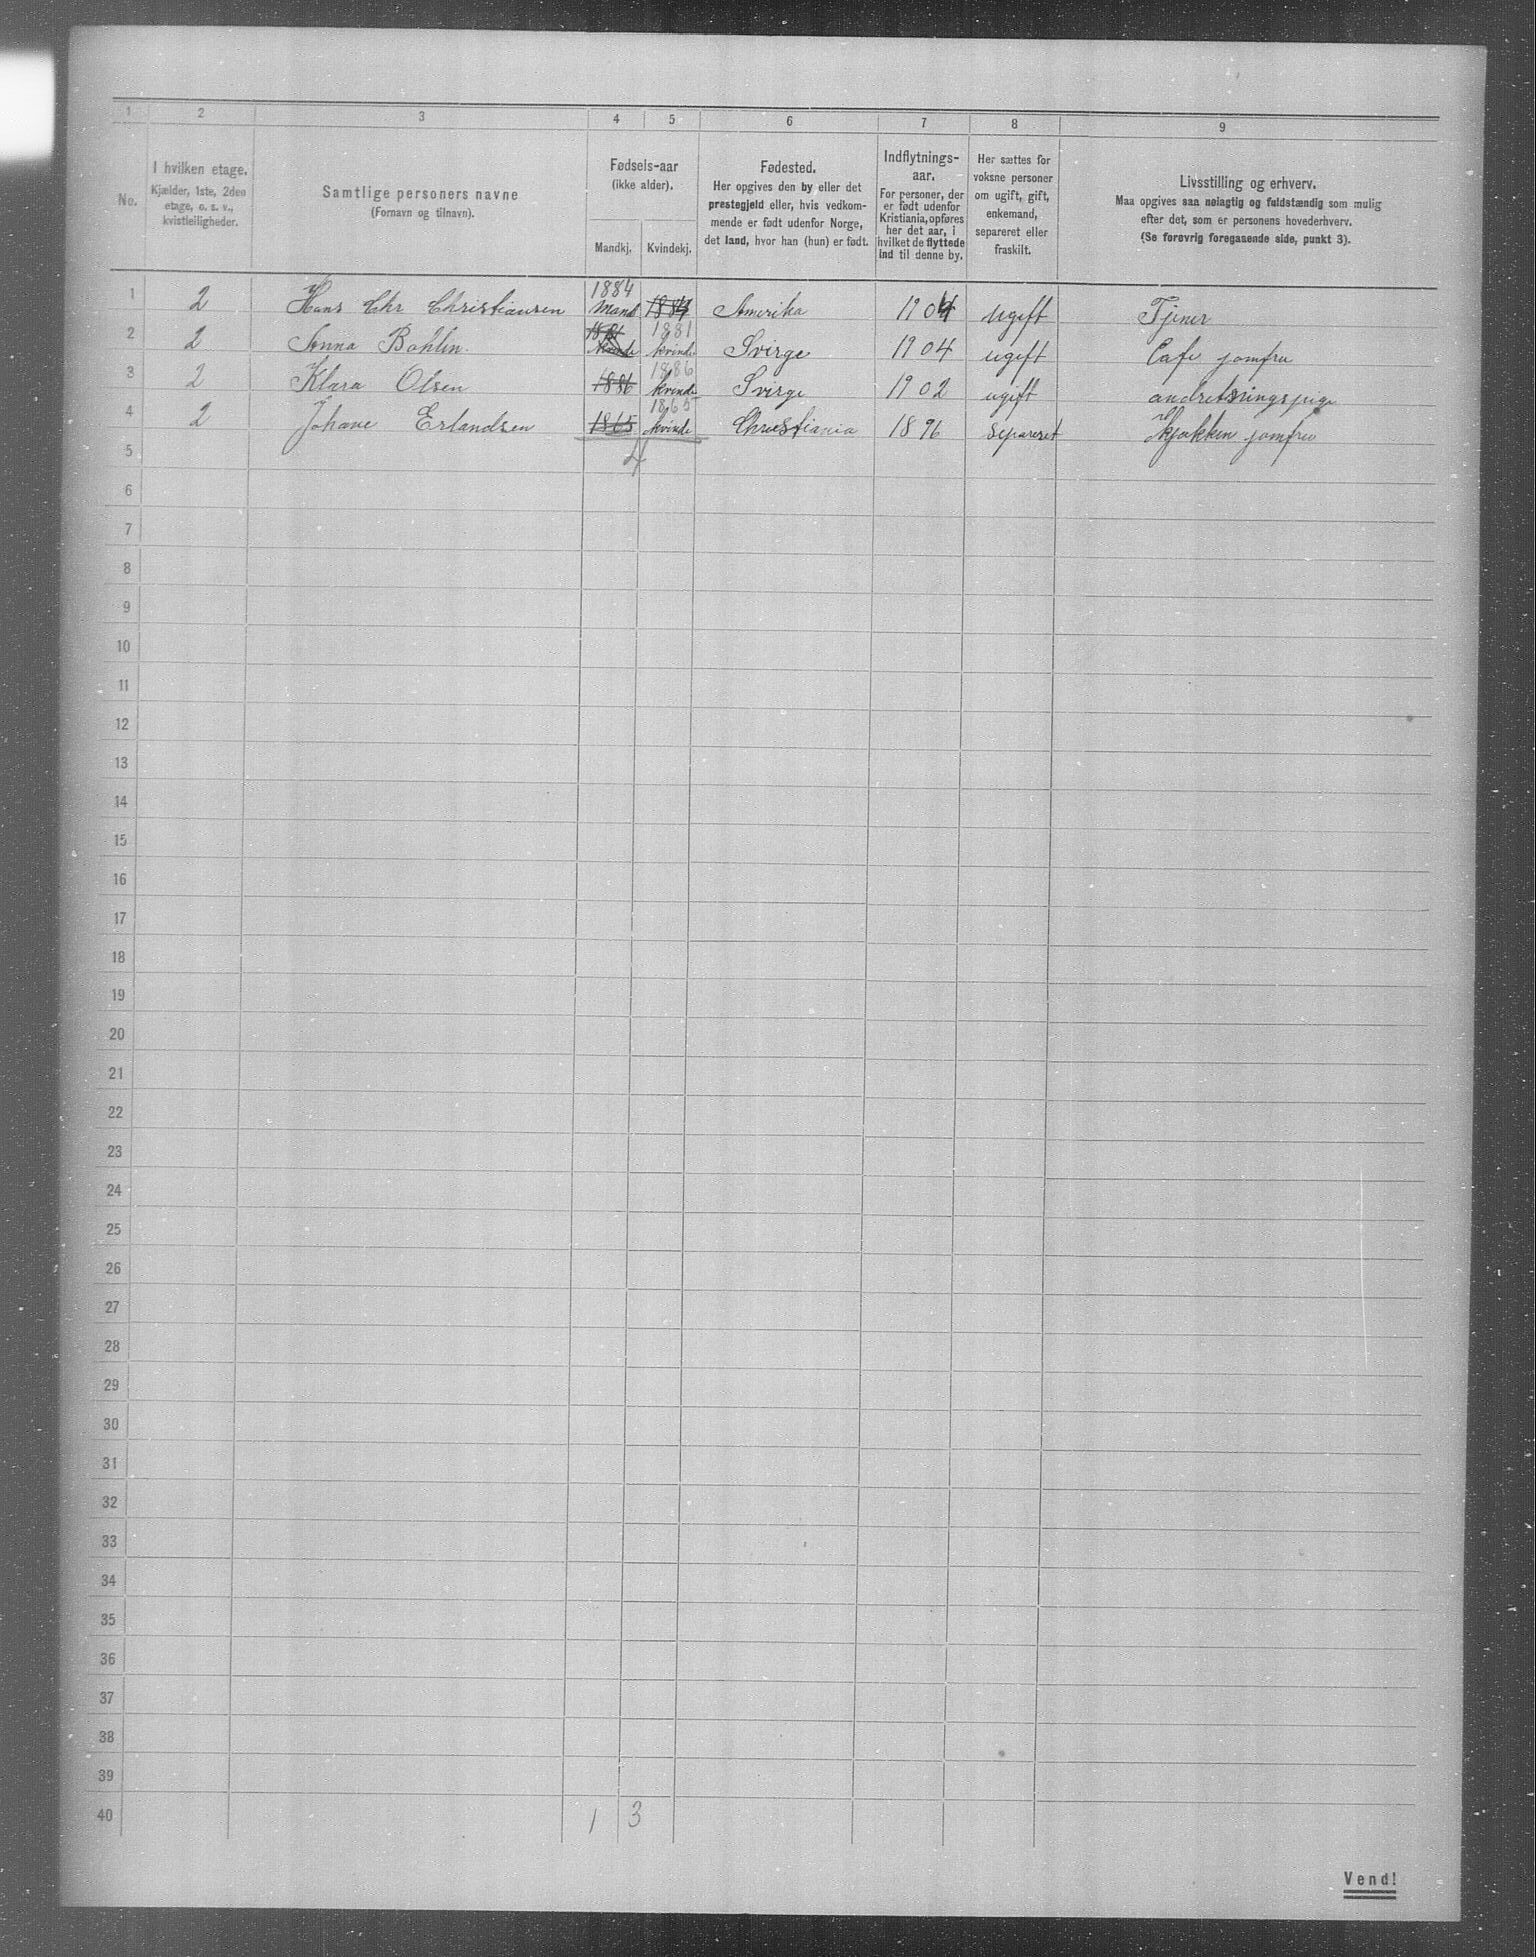 1 2 3 4 5 6 7 8 9
No.
I hvilken etage.
Kjælder, 1ste, 2den
etage, o. s. v.,
kvistleiligheder.
Samtlige personers navne
(Fornavn og tilnavn).
Fødsels-aar
(ikke alder).
Mandkj. Kvindekj.
Fødested.
Her opgives den by eller det
prestegjeld eller, hvis vedkom-
mende er født udenfor Norge,
det land, hvor han (hun) er født.
Indflytnings-
aar.
For personer, der
er født udenfor
Kristiania, opføres
her det aar, i
hvilket de flyttede
ind til denne by.
Her sættes for
voksne personer
om ugift, gift,
enkemand,
separeret eller
fraskilt.
Livsstilling og erhverv.
Maa opgives saa nøiagtig og fuldstændig som mulig
efter det, som er personens hovederhverv.
(Se forøvrig foregaaende side, punkt 3).
1884
1 2 Hans Chr Christiansen Mand 1884 Amerika 1904 Ugift Tjener
1881 1881
2 2 Anna Bohlin. kvinde kvinde Svirge 1904 ugift Cafe jomfru
1886
3 2 Klara Olsen 1886 kvinde Svirge 1902 ugift andretsningspige
1865
4 2 Johane Erlandsen 1865 kvinde Christiania 1896 Separeret Kjøkken jomfru
5 4
6
7
8
9
10
11
12
13
14
15
16
17
18
19
20
21
22
23
24
25
26
27
28
29
30
31
32
33
34
35
36
37
38
39
40 1 3
Vend!